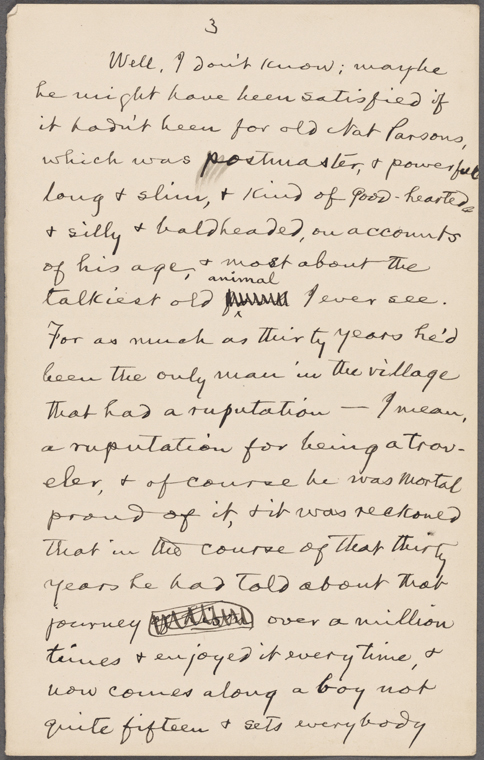 3
Well, I don't know; maybe
he might have been satisfied if
it hadn't been for old Nat Parsons,
which was postmaster, & powerful
long & slim, & kind of good-hearted
& silly & baldheaded, on accounts
of his age, & most about the
animal
talkiest old I ever see.
For as much as thirty years he'd
been the only man in the village
that had a ruputation — I mean,
a ruputation for being a trav-
eler, & of course he was mortal
proud of it, & it was reckoned
that in the course of that thirty
years he had told about that
journey over a million
times & enjoyed it every time, &
now comes along a boy not
quite fifteen & sets everybody